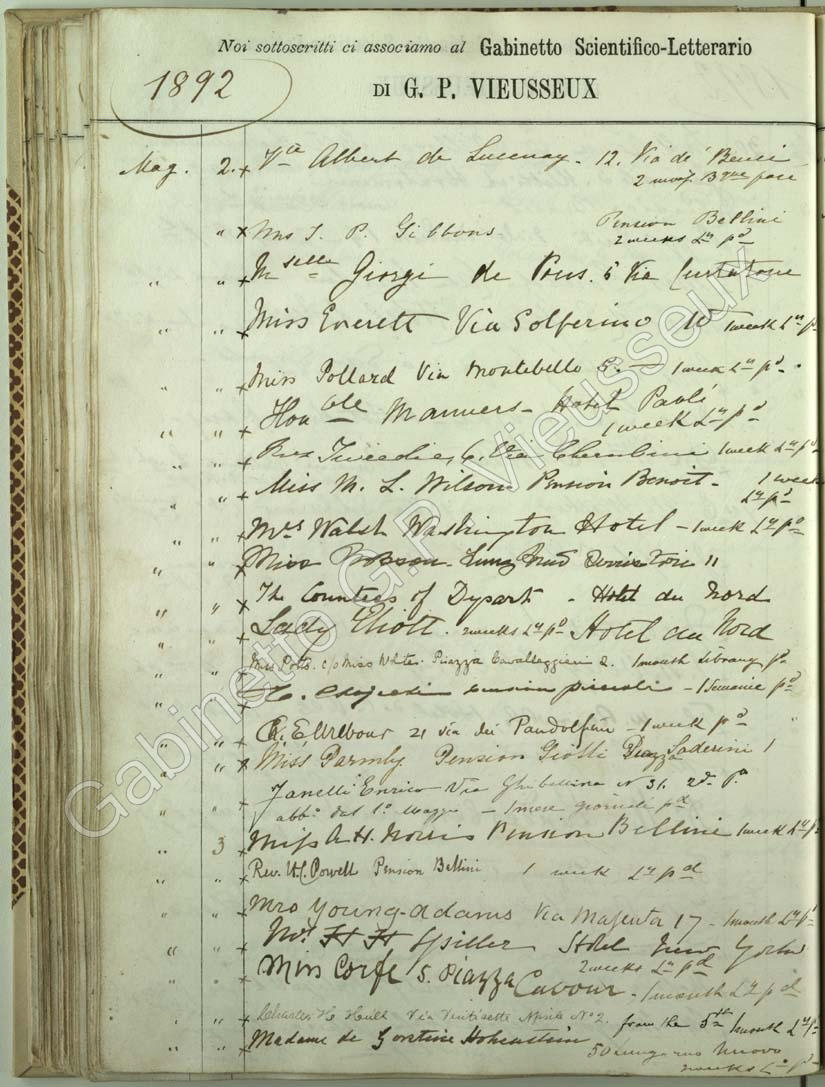 Noi sottoscritti ci associamo al Gabinetto Scientifico-Letterario
1892
DI G. P. VIEUSSEUX
Mag. 2. x Albert de 12. Via de' Benci
2
" x Mrs P. Gibbons Pension Bellini
2 weeks Ly pd
" " x Mselle Giorgi de Via Curtatone
" " x Miss Everett Via Solferino 10 1 week Ly pd
" " x Miss Pollard Via Montebello 5. — 1 week Ly pd.
" " x Honble Manners - Hotel Paoli
1 week Ly pd
" " x Tweedie 6. Via Cherubini 1 week Ly pd
" " x Miss M. L. Wilson Pension Benoit - 1 week
Ly pd
" " x Mrs Walsh Washington Hotel - 1 week Ly pd
" " x Miss 11
" " x The Countess of Dysart - Hotel du Nord
" " x Lady Eliott. 2 weeks Ly pd Hotel du Nord
" " x Miss Potts. c/o Miss White. Piazza Cavalleggieri 2. 1 month Library pd
" " x pension piccioli - 1 Semaine pd
" " x 21 via dei Pandolfini - 1 week pd "
" " x Miss Parmly Pension Giotti Piazza Soderini 1
" " x Zanelli Enrico Via Ghibellina No 31. 2o po
abbo dal 1o Maggio - 1 mese giornali pd
" 3 x Miss A. H. Norris Pension Bellini 1 week Ly pd
" " x Rev. Powell Pension Bellini 1 week Ly pd
" " x Mrs Young-Adams Via Magenta 17 - 1 month Ly pd
" " x Spiller Hotel New York
2 weeks Ly pd
" " x Miss Corfe 5. Piazza Cavour - 1 month Ly pd
" " x Charles H. Via Ventisette Aprile No 2. from the 5th 1 month Ly pd
" " x Madame de Hohenstein
50 Lungarno Nuovo
2 weeks Ly pd
Gabinetto G.P. Vieusseux